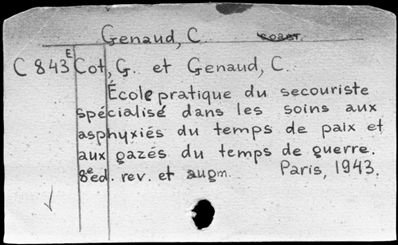 Genaud, C.
C 843 E Cot, G. et Genaud, C.
École pratique du secouriste
spécialisé dans les soins aux
asphyxiés du temps de paix et
aux gazés du temps de guerre.
8e ed. rev. et augm. Paris, 1943.